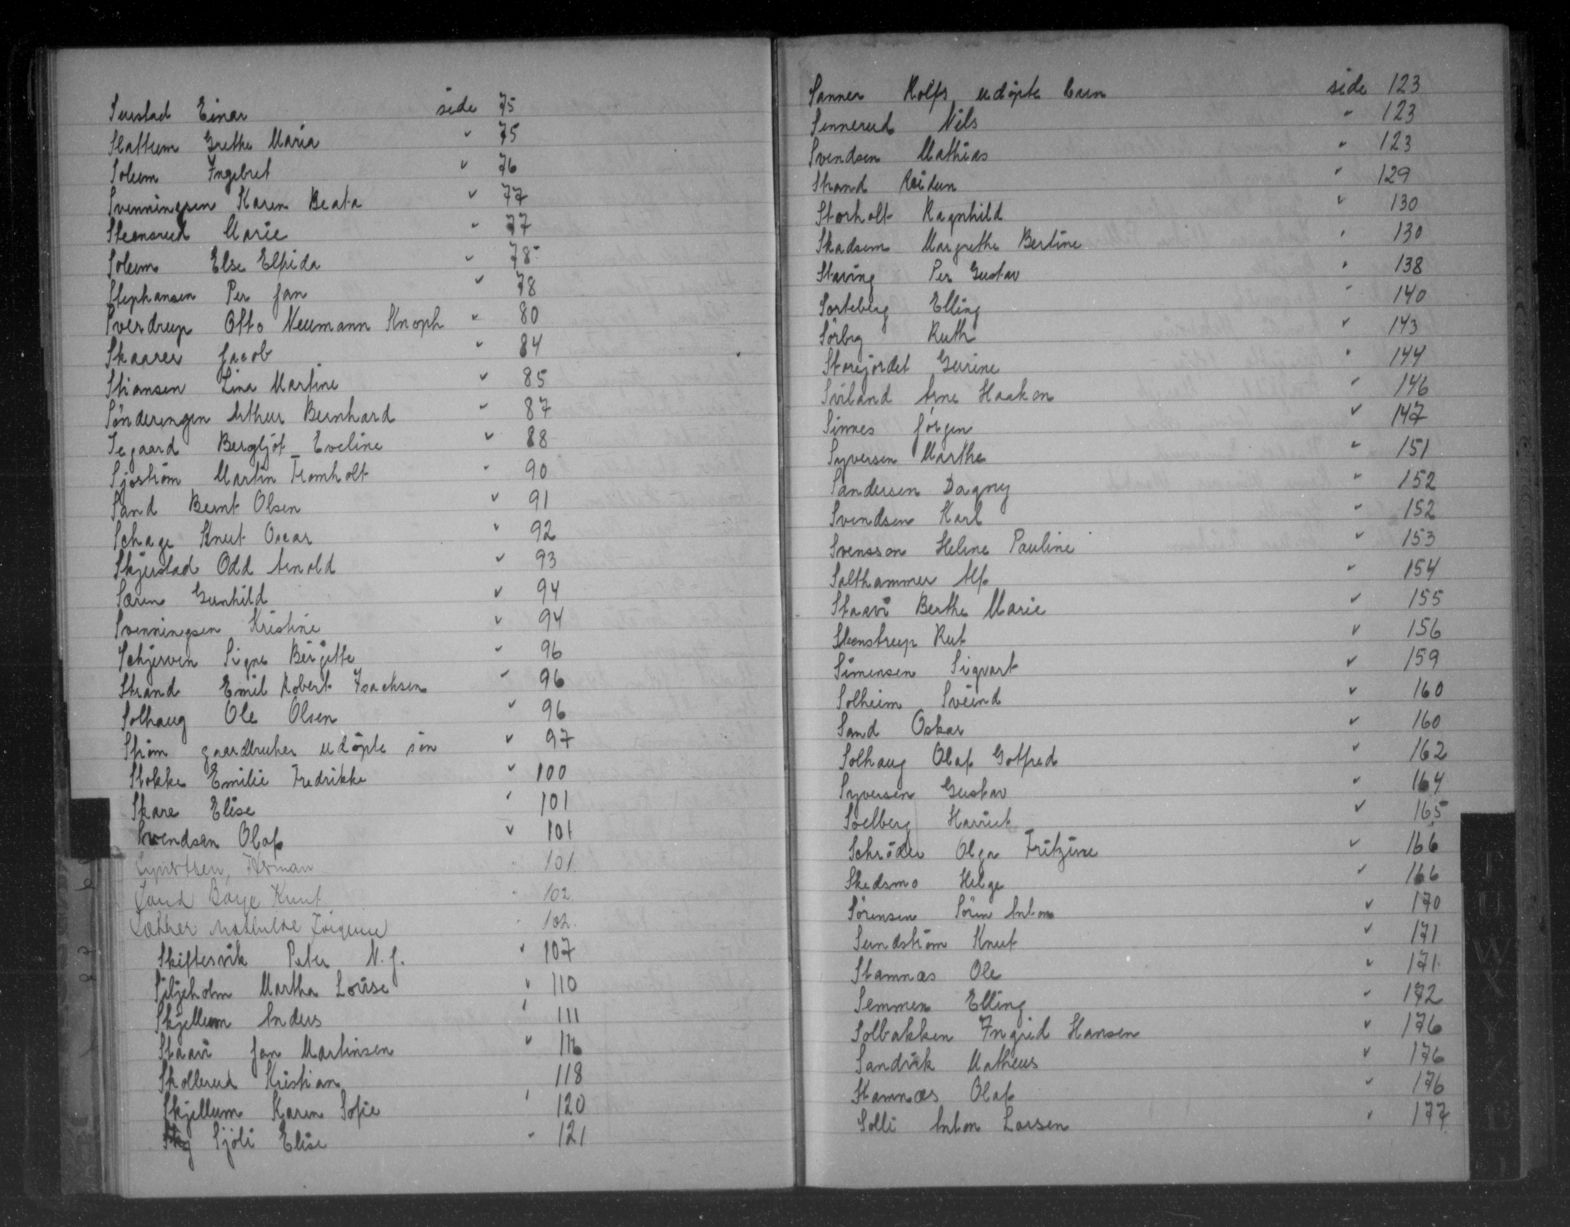 Surstad Einar side 75
Slattum Grethe Maria " 75
Solum Ingebret " 76
Svenningsen Karen Beata " 77
Steensrud Marie " 77
Solum Else Elfrida " 78
Stephansen Per Jan " 78
Sverdrup Otto Neumann Knoph " 80
Skaarer Jacob " 84
Stiansen Lina Martine " 85
Sönderengen Arthur Bernhard " 87
Segaard Bergljot Eveline " 88
Sjöström Martin Tromholt " 90
Sand Bernt Olsen " 91
Schage Knut Oscar " 92
Skjerstad Odd Arnold " 93
Søren Gunhild " 94
Svenningsen Kristine " 94
Schjerven Signe Birgitte " 96
Strand Emil Robert Isachsen " 96
Solhaug Ole Olsen " 96
Strøm gaardbruker udöpte sön " 97
Stokke Emilie Fredrikke " 100
Skare Elise " 101
Svendsen Olaf " 101
Syvertsen, Herman " 101
Sand Baye Knut " 102
Sæther Mathilde Jörgine " 102.
Skiftesvik Peter N. J. " 107
Siljeholm Martha Lovise " 110
Skjellum Anders " 111
Staavi Jan Martinsen " 116
Skollerud Kristian 118
Skjellum Karen Sofie " 120
Sjöli Elise " 121
Sanner Rolfs udöpte barn side 123
Sinnerud Nils " 123
Svendsen Mathias " 123
Strand Reidun " 129
Storholt Ragnhild " 130
Skadsem Margrethe Bertine " 130
Staving Per Gustav " 138
Sorteberg Elling " 140
Sørby Ruth " 143
Storejordet Gurine " 144
Sviland Arne Haakon " 146
Sinnes Jörgen " 147
Syversen Marthe " 151
Sandersen Dagny " 152
Svendsen Karl " 152
Svensson Helene Pauline " 153
Salthammer Alf " 154
Staavi Berthe Marie " 155
Steenstrup Rut " 156
Simensen Sigvart " 159
Solheim Sveind " 160
Sand Oskar " 160
Solhaug Olaf Gotfred " 162
Syversen Gustav " 164
Soelberg Harriet " 165
Schröder Olga Fritzine " 166
Skedsmo Helge " 166
Sörensen Sören Anton " 170
Sundström Knut " 171
Stamnæs Ole " 171
Semmen Elling " 172
Solbakken Ingrid Hansen " 176
Sandvik Matheus " 176
Stamnæs Olaf " 176
Solli Anton Larsen " 177